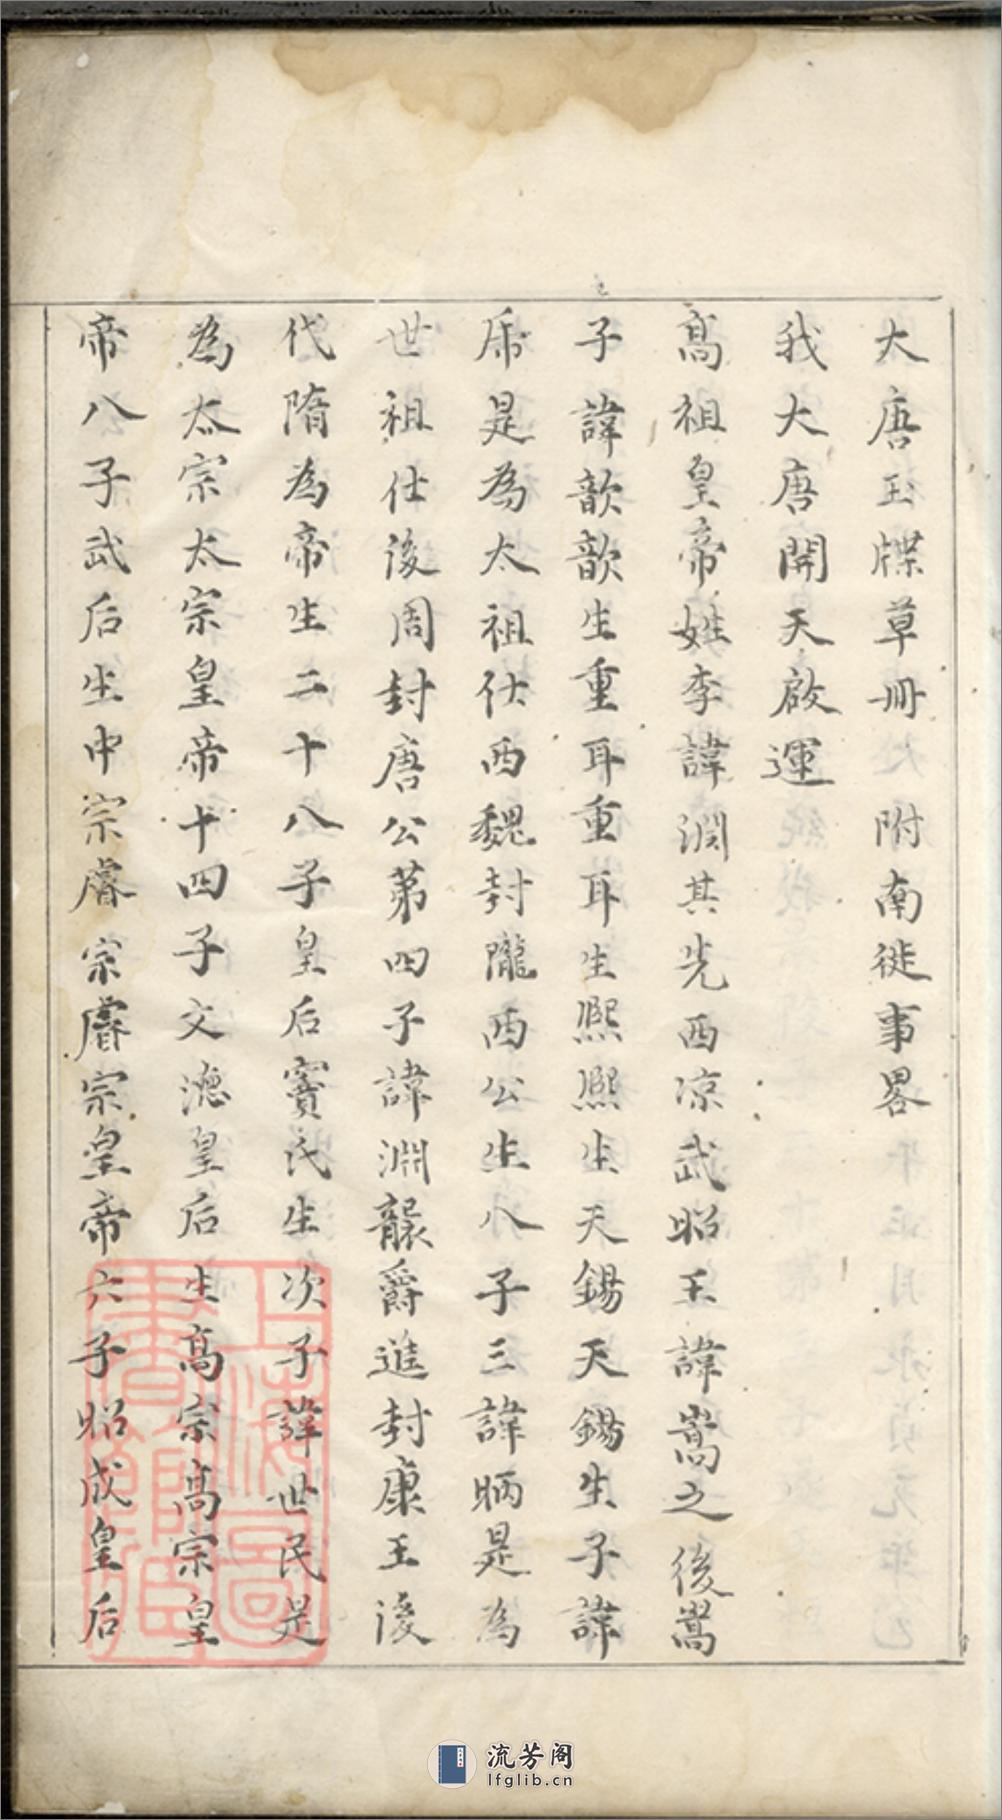 大唐玉牒草冊 附南徙事畧
我大唐開天啟運
髙祖皇帝姓李諱淵其先西凉武昭王諱嵩之後嵩
子諱歆歆生重耳重耳生熙熙生天錫天錫生子諱
乕是為太祖仕西魏封隴西公生八子三諱昞是為
世祖仕後周封唐公第四子諱淵襲爵進封康王後
代隋為帝生二十八子皇后竇氏生次子諱世民是
為太宗太宗皇帝十四子文德皇后生髙宗髙宗皇
帝八子武后生中宗睿宗睿宗皇帝六子昭成皇后
上海圖書館藏
流芳阁
lfglib.cn